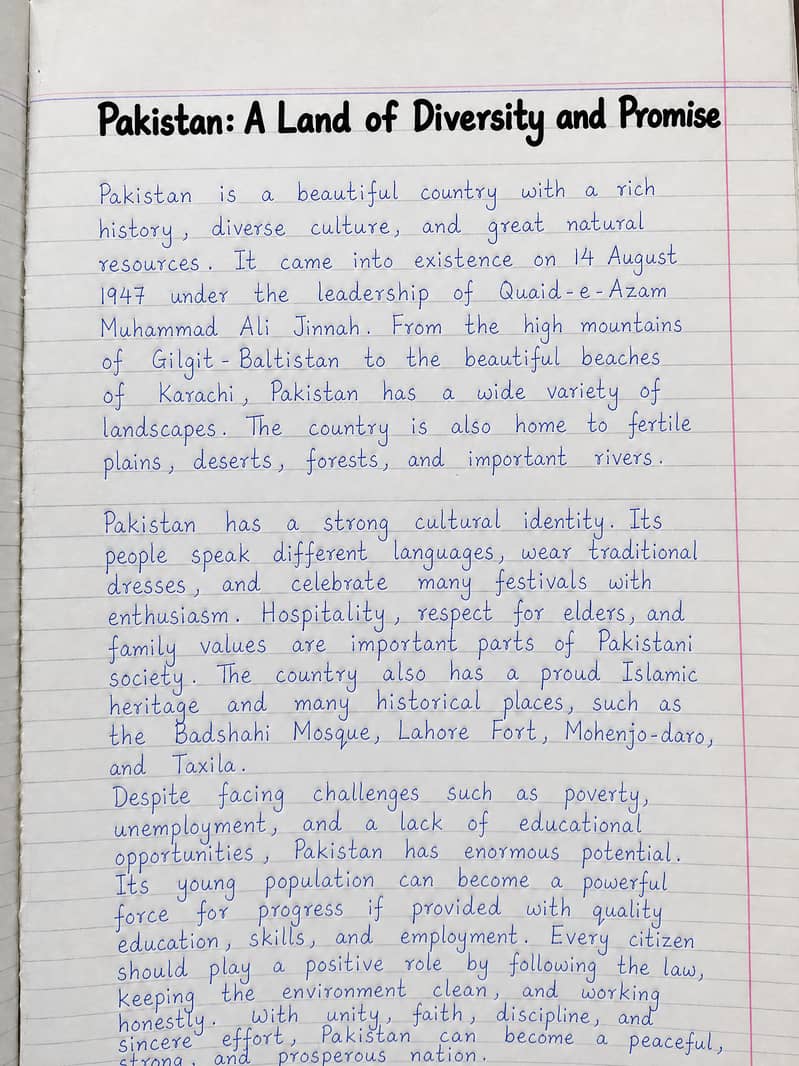 Pakistan: A Land of Diversity and Promise
Pakistan is a beautiful country with a rich
history, diverse culture, and great natural
resources. It came into existence on 14 August
1947 under the leadership of Quaid-e-Azam
Muhammad Ali Jinnah. From the high mountains
of Gilgit-Baltistan to the beautiful beaches
of Karachi, Pakistan has a wide variety of
landscapes. The country is also home to fertile
plains, deserts, forests, and important rivers.
Pakistan has a strong cultural identity. Its
people speak different languages, wear traditional
dresses, and celebrate many festivals with
enthusiasm. Hospitality, respect for elders, and
family values are important parts of Pakistani
society. The country also has a proud Islamic
heritage and many historical places, such as
the Badshahi Mosque, Lahore Fort, Mohenjo-daro,
and Taxila.
Despite facing challenges such as poverty,
unemployment, and a lack of educational
opportunities, Pakistan has enormous potential.
Its young population can become a powerful
force for progress if provided with quality
education, skills, and employment. Every citizen
should play a positive role by following the law,
keeping the environment clean, and working
honestly. With unity, faith, discipline, and
sincere effort, Pakistan can become a peaceful,
strong, and prosperous nation.